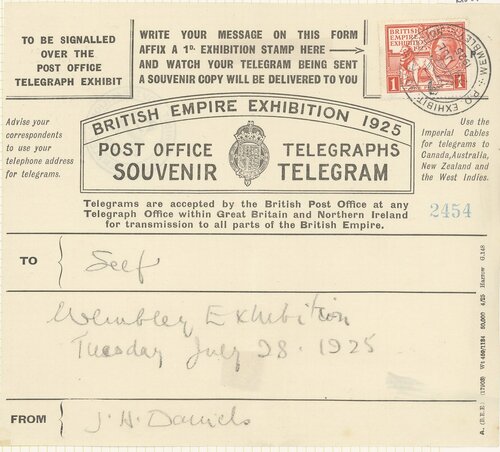 TO BE SIGNALLED
OVER THE
POST OFFICE
TELEGRAPH EXHIBIT
WRITE YOUR MESSAGE ON THIS FORM
AFFIX A 1D. EXHIBITION STAMP HERE
AND WATCH YOUR TELEGRAM BEING SENT
A SOUVENIR COPY WILL BE DELIVERED TO YOU
BRITISH
EMPIRE
EXHIBITION
1925
1 1
P.O. EXHIBIT
WEMBLEY
BRITISH EMPIRE EXHIBITION 1925
POST OFFICE TELEGRAPHS
SOUVENIR TELEGRAM
Advise your
correspondents
to use your
telephone address
for telegrams.
Use the
Imperial Cables
for telegrams to
Canada, Australia,
New Zealand and
the West Indies.
Telegrams are accepted by the British Post Office at any
Telegraph Office within Great Britain and Northern Ireland
for transmission to all parts of the British Empire.
2454
TO Self
Wembley Exhibition
Tuesday July 28 . 1925
FROM J. H. Daniels
A. (D.E.E.) (17903) Wt 460/1184 50,000 4/25 Harrow G.148